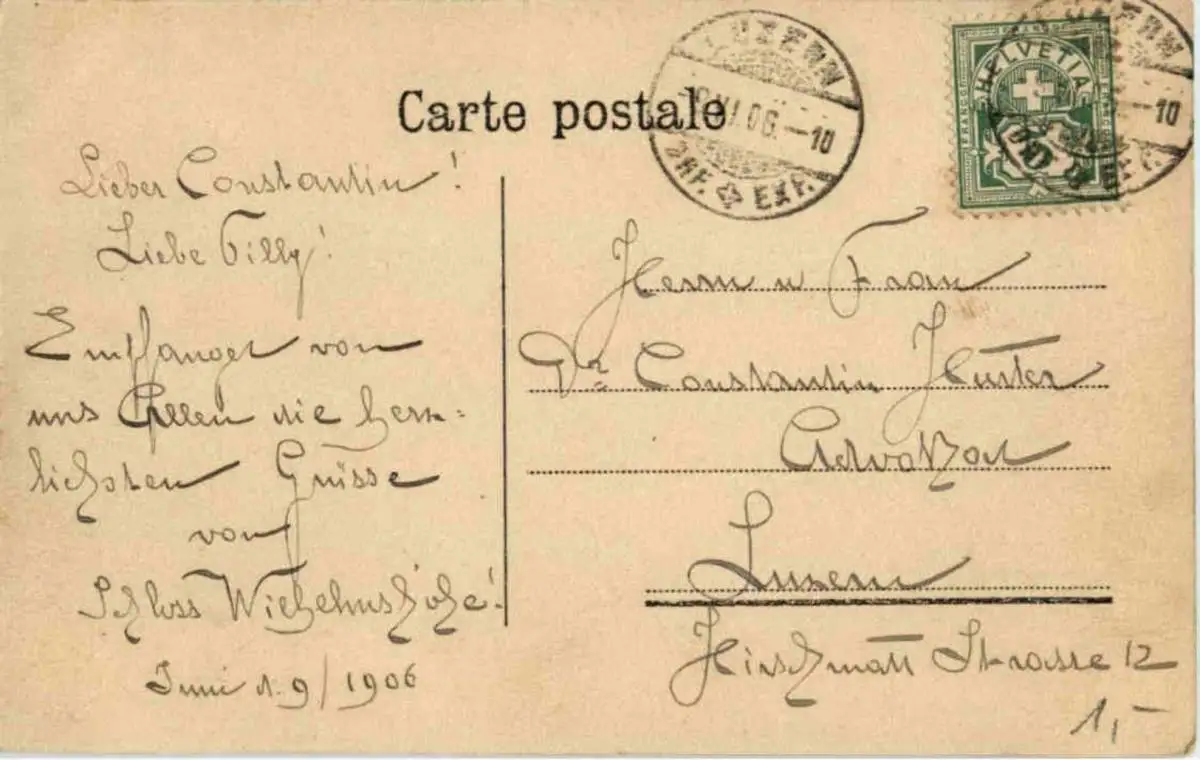 Carte postale
LUZERN
VI.06.–10
BRF. EXP.
HELVETIA
FRANCO
LUZERN
10
Lieber Constantin!
Liebe Tilly!
Empfanget von
uns Allen die herz=
lichsten Grüsse
vom
Schloss Wilhelmshöhe!
Juni d. 9/1906
Herrn u Frau
Dr. Constantin Huter
Advokat
Luzern
Hirschmatt Strasse 12
1,–